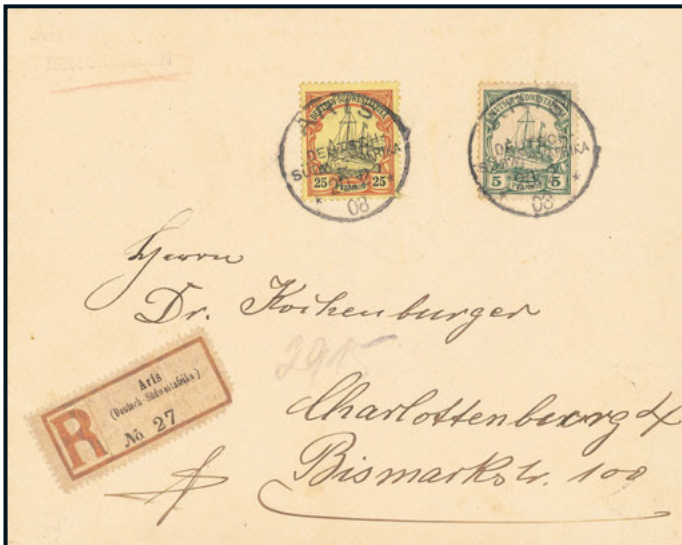 DEUTSCH-SÜDWESTAFRIKA
25 25
DEUTSCH-SÜDWESTAFRIKA
5 5
ARIS
DEUTSCH-
SÜDWESTAFRIKA
08
DEUTSCH-
SÜDWESTAFRIKA
08
Herrn
Dr. Kochenburger
R
Aris
(Deutsch-Südwestafrika)
No 27
Charlottenburg
Bismarkstr. 100